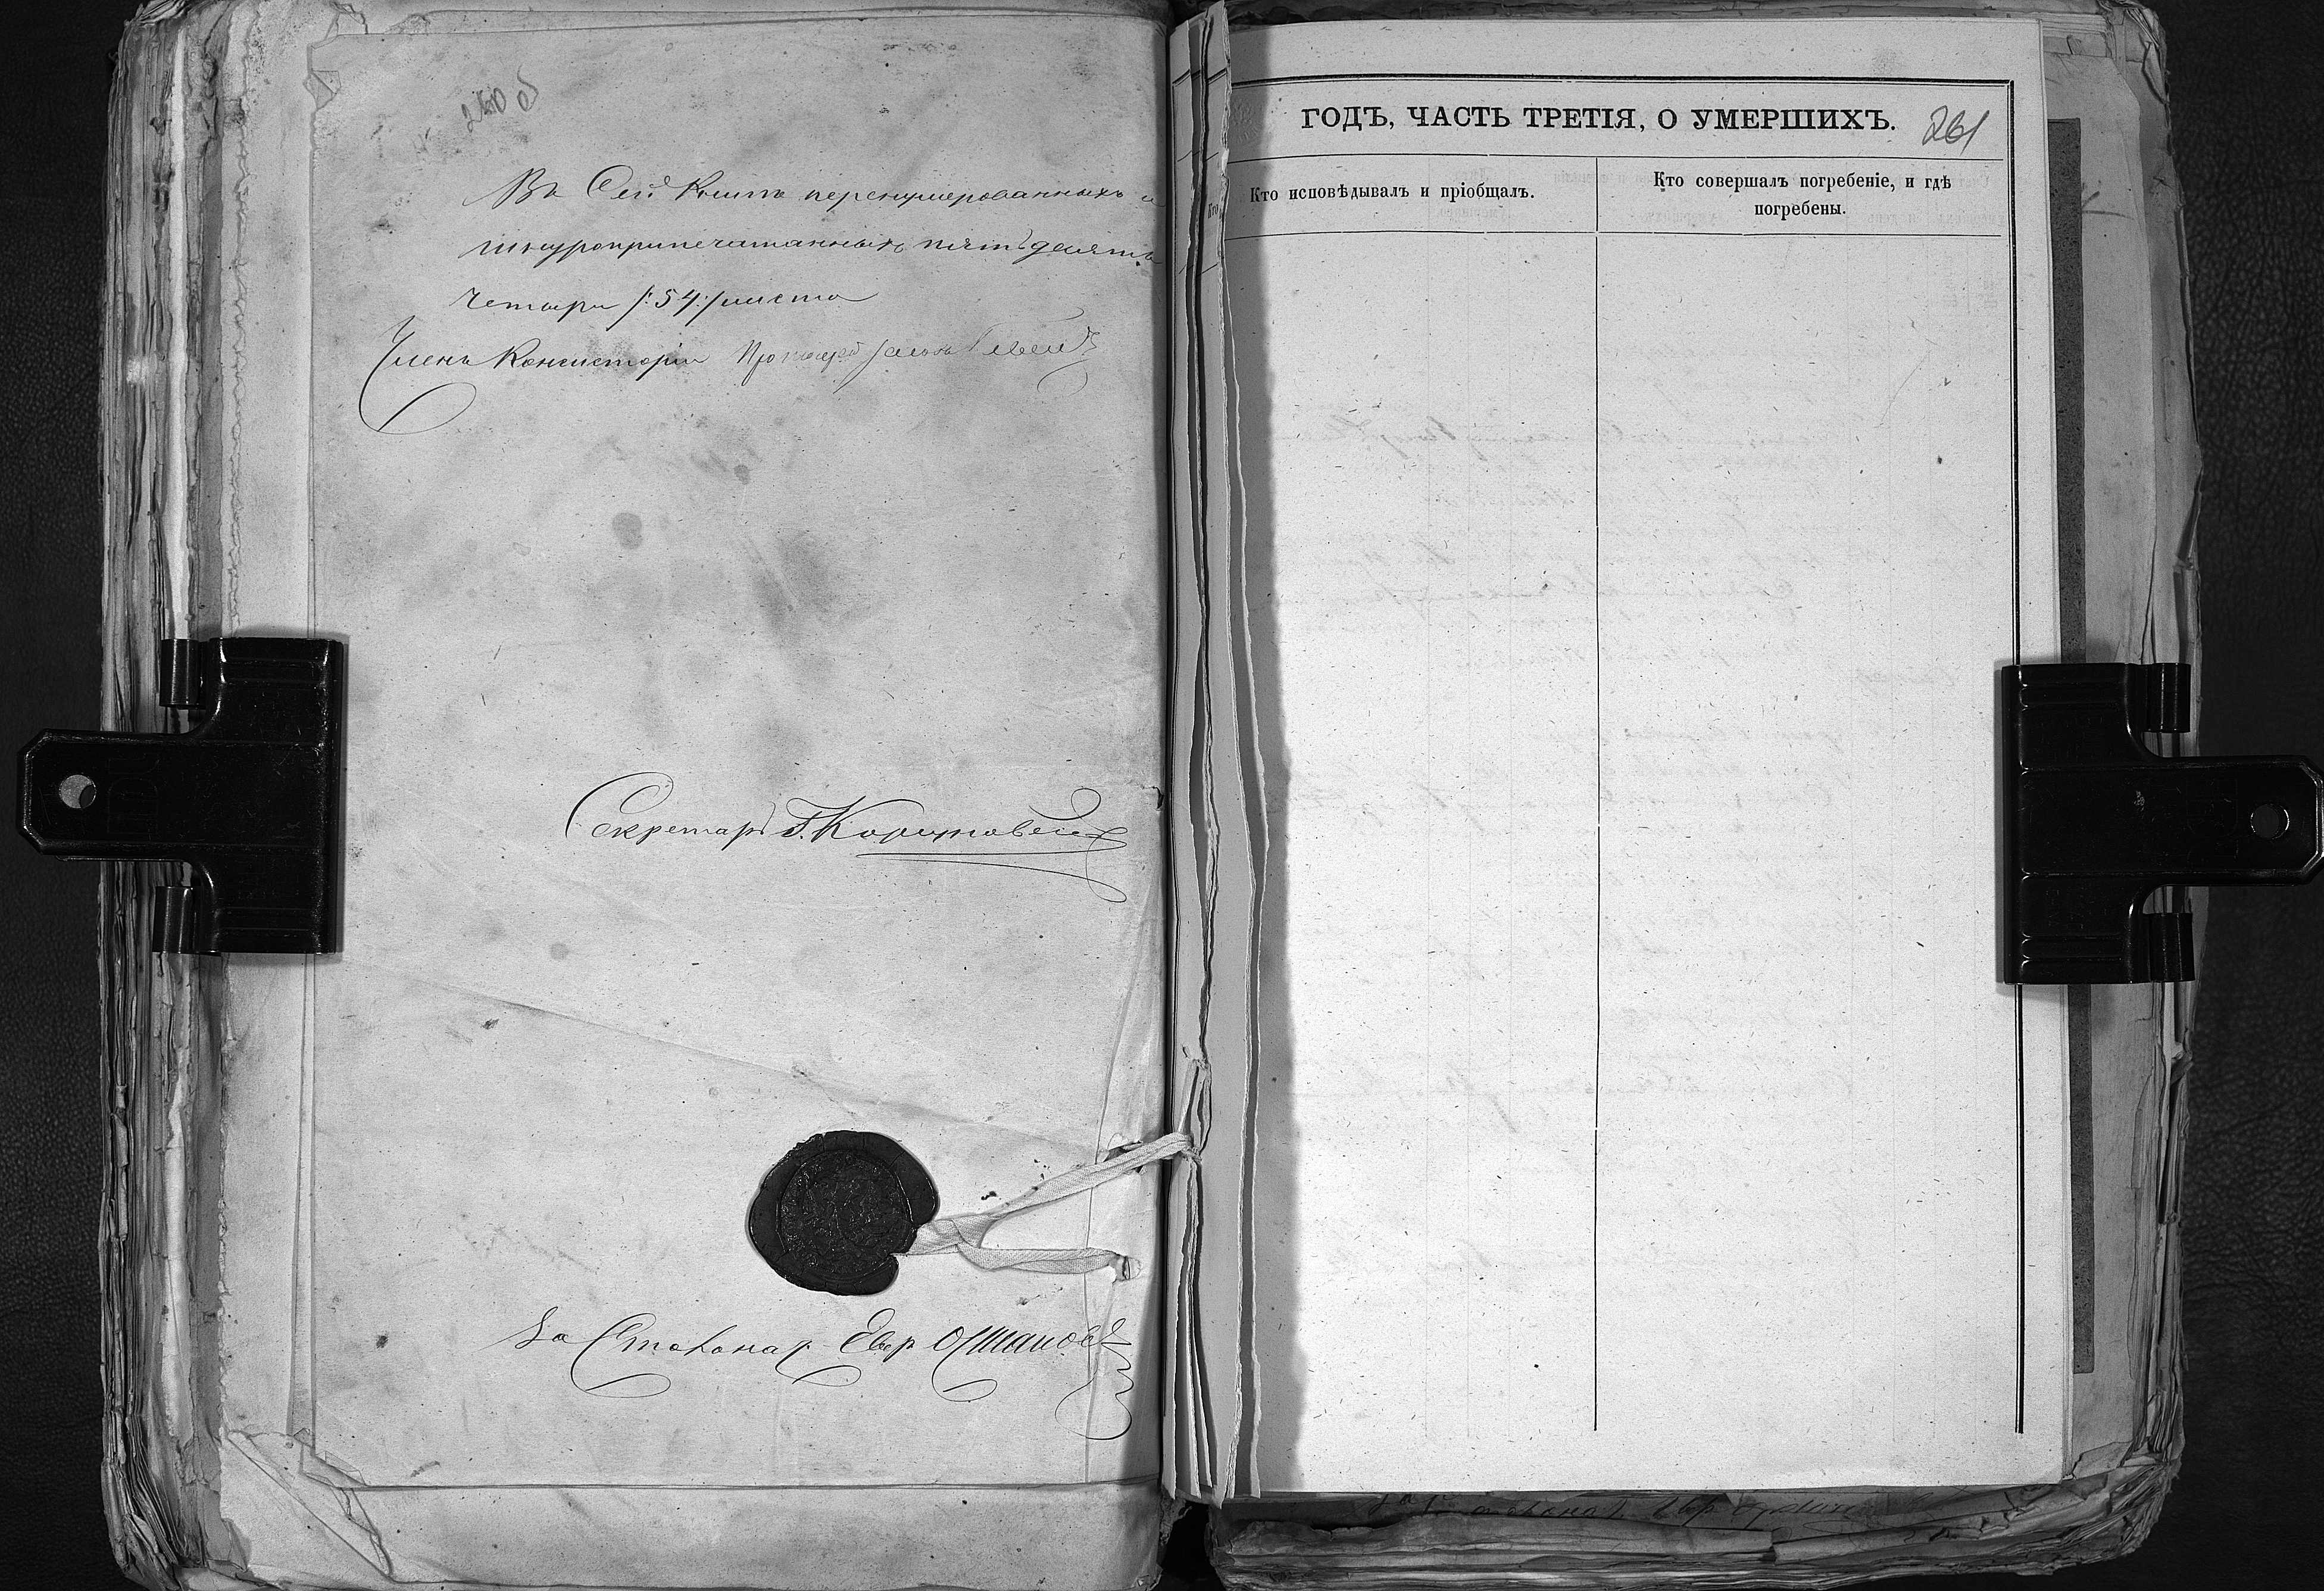 Въ Сей Книгѣ перенумерованныхъ и
шнуроприпечатанныхъ пятьдесятъ
четыри /:54:/ листа
Членъ Консисторіи Протоіерей
Секретарь Г.
За Столонач. Евр
ГОДЪ, ЧАСТЬ ТРЕТІЯ, О УМЕРШИХЪ. 261
Кто исповѣдывалъ и пріобщалъ.
Кто совершалъ погребеніе, и гдѣ
погребены.